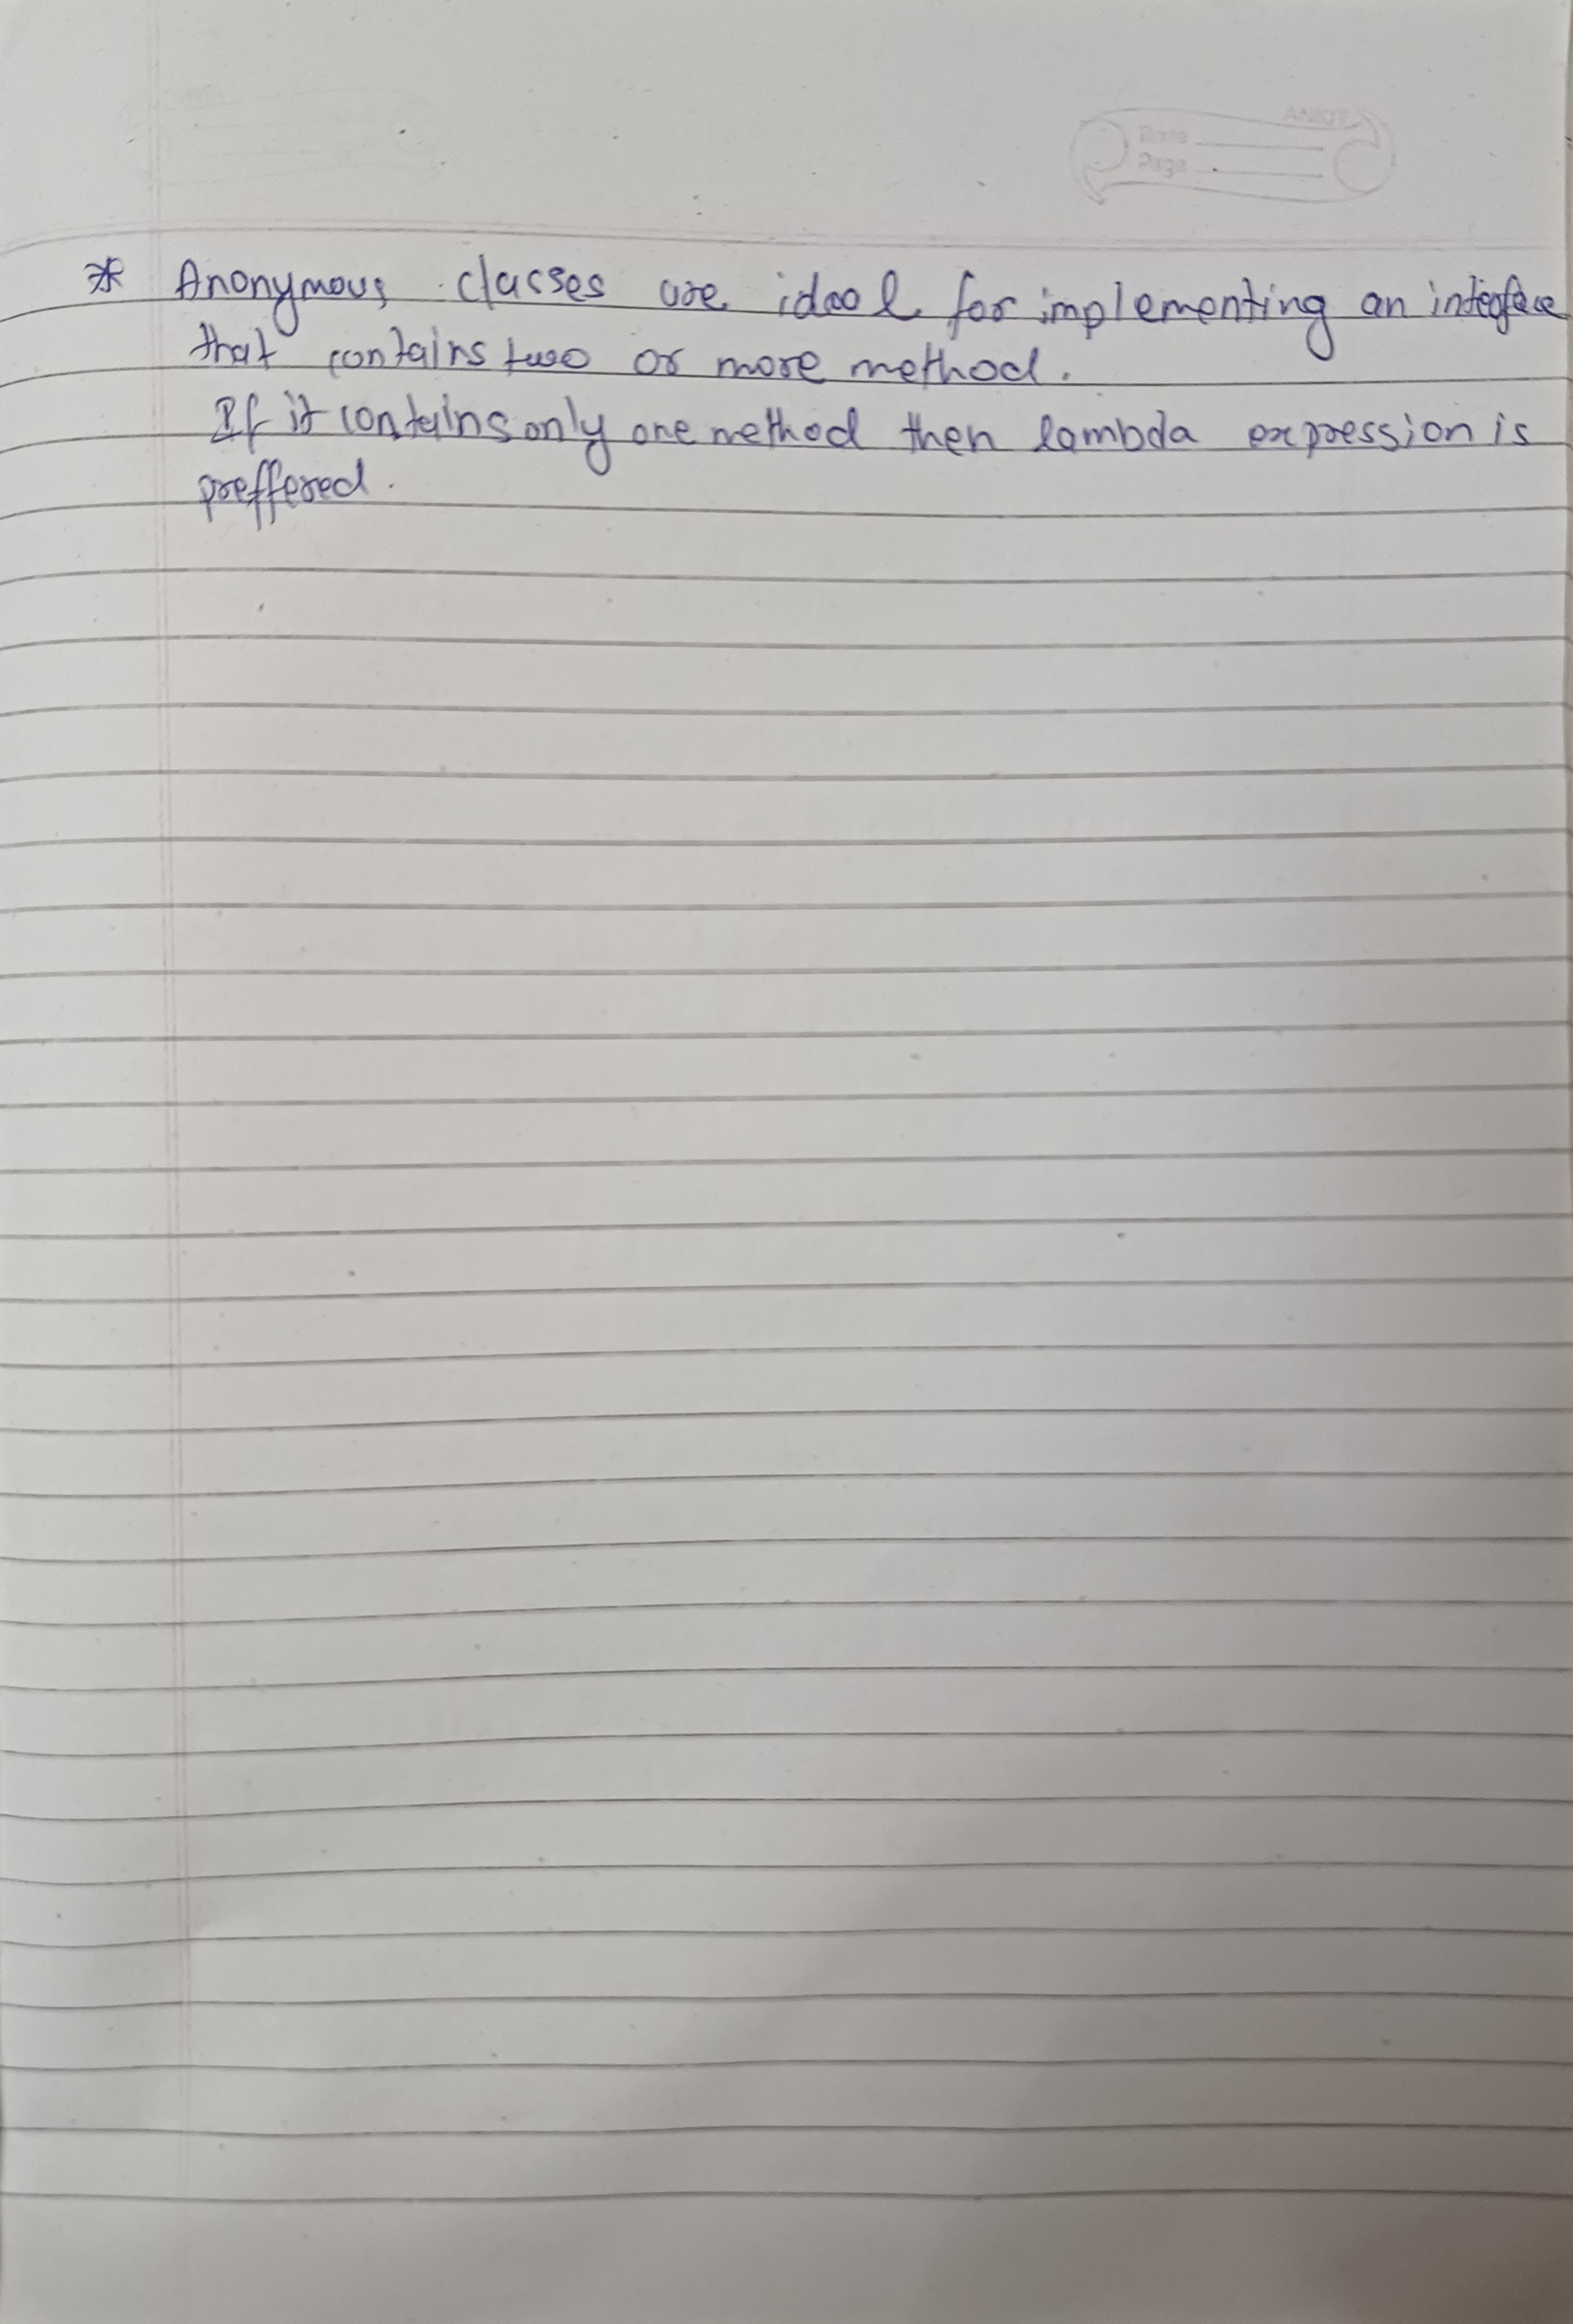 ANKIT
Date
Page
* Anonymous classes are ideal for implementing an interface
that contains two or more method.
If it contains only one method then lambda expression is
preffered.